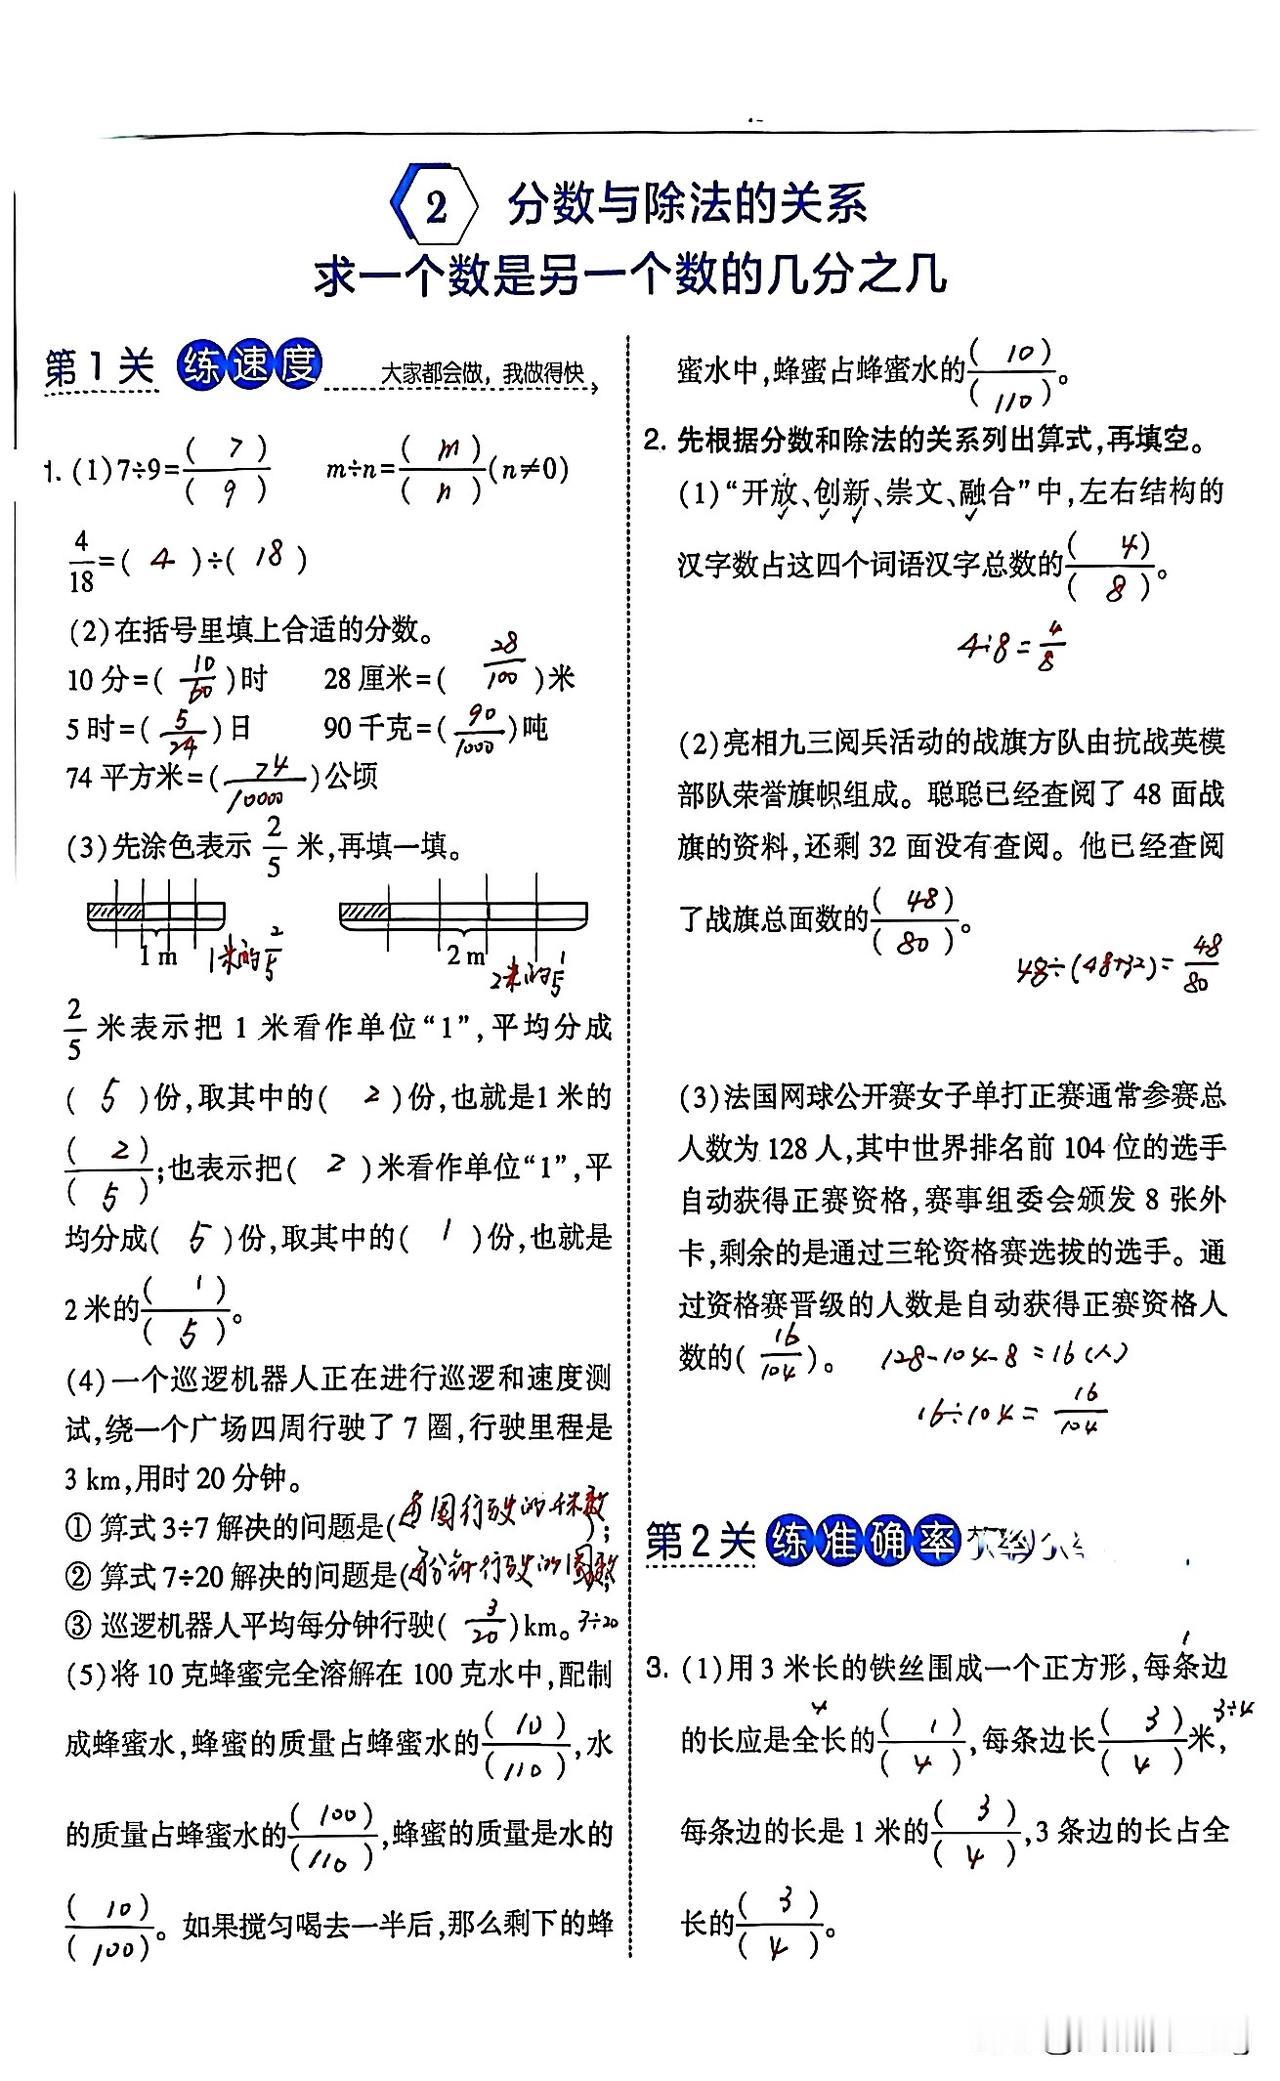 2 分数与除法的关系
求一个数是另一个数的几分之几
第1关 练速度 大家都会做，我做得快
1. (1) 7÷9=(7)/(9) m÷n=(m)/(n)(n≠0)
4/18=(4)÷(18)
(2)在括号里填上合适的分数。
10分=(10/60)时 28厘米=(28/100)米
5时=(5/24)日 90千克=(90/1000)吨
74平方米=(74/10000)公顷
(3)先涂色表示2/5米,再填一填。
1 m 1米的2/5 2 m 2米的1/5
2/5米表示把1米看作单位“1”,平均分成
(5)份,取其中的(2)份,也就是1米的
(2)/(5);也表示把(2)米看作单位“1”,平
均分成(5)份,取其中的(1)份,也就是
2米的(1)/(5)。
(4)一个巡逻机器人正在进行巡逻和速度测
试,绕一个广场四周行驶了7圈,行驶里程是
3 km,用时20分钟。
① 算式3÷7解决的问题是(每圈行驶的千米数);
② 算式7÷20解决的问题是(每分钟行驶的圈数
③ 巡逻机器人平均每分钟行驶(3/20)km。3÷20
(5)将10克蜂蜜完全溶解在100克水中,配制
成蜂蜜水,蜂蜜的质量占蜂蜜水的(10)/(110),水
的质量占蜂蜜水的(100)/(110),蜂蜜的质量是水的
(10)/(100)。如果搅匀喝去一半后,那么剩下的蜂
蜜水中,蜂蜜占蜂蜜水的(10)/(110)。
2. 先根据分数和除法的关系列出算式,再填空。
(1)“开放、创新、崇文、融合”中,左右结构的
汉字数占这四个词语汉字总数的(4)/(8)。
4÷8=4/8
(2)亮相九三阅兵活动的战旗方队由抗战英模
部队荣誉旗帜组成。聪聪已经查阅了48面战
旗的资料,还剩32面没有查阅。他已经查阅
了战旗总面数的(48)/(80)。
48÷(48+32)=48/80
(3)法国网球公开赛女子单打正赛通常参赛总
人数为128人,其中世界排名前104位的选手
自动获得正赛资格,赛事组委会颁发8张外
卡,剩余的是通过三轮资格赛选拔的选手。通
过资格赛晋级的人数是自动获得正赛资格人
数的(16/104)。 128-104-8=16(人)
16÷104=16/104
第2关 练准确率
3. (1)用3米长的铁丝围成一个正方形,每条边
1
的长应是全长的(1)/(4),每条边长(3)/(4)米,
4 3÷4
每条边的长是1米的(3)/(4),3条边的长占全
长的(3)/(4)。